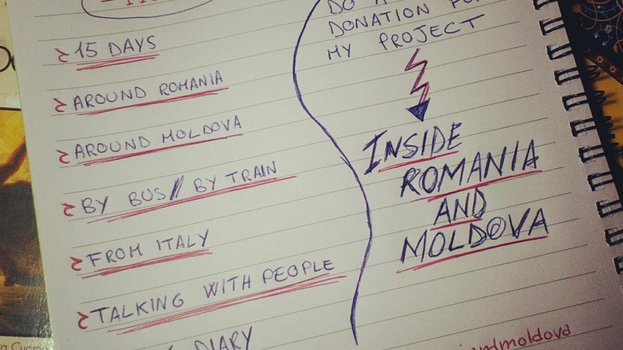 15 DAYS
AROUND ROMANIA
AROUND MOLDOVA
BY BUS // BY TRAIN
FROM ITALY
TALKING WITH PEOPLE
DIARY
DO
DONATION
MY PROJECT
INSIDE
ROMANIA
AND
MOLDOVA
andmoldova